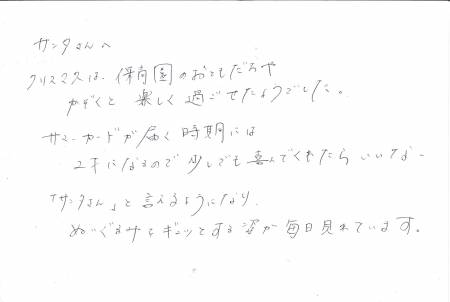 サンタさんへ
クリスマスは、保育園のおともだちや
かぞくと 楽しく 過ごせたようでした。
サマーカードが届く 時期には
2才になるので 少しでも 喜んでくれたら いいなー
「サンタさん」と 言えるようになり、
ぬいぐるみを ギュッとする 姿が 毎日 見れています。